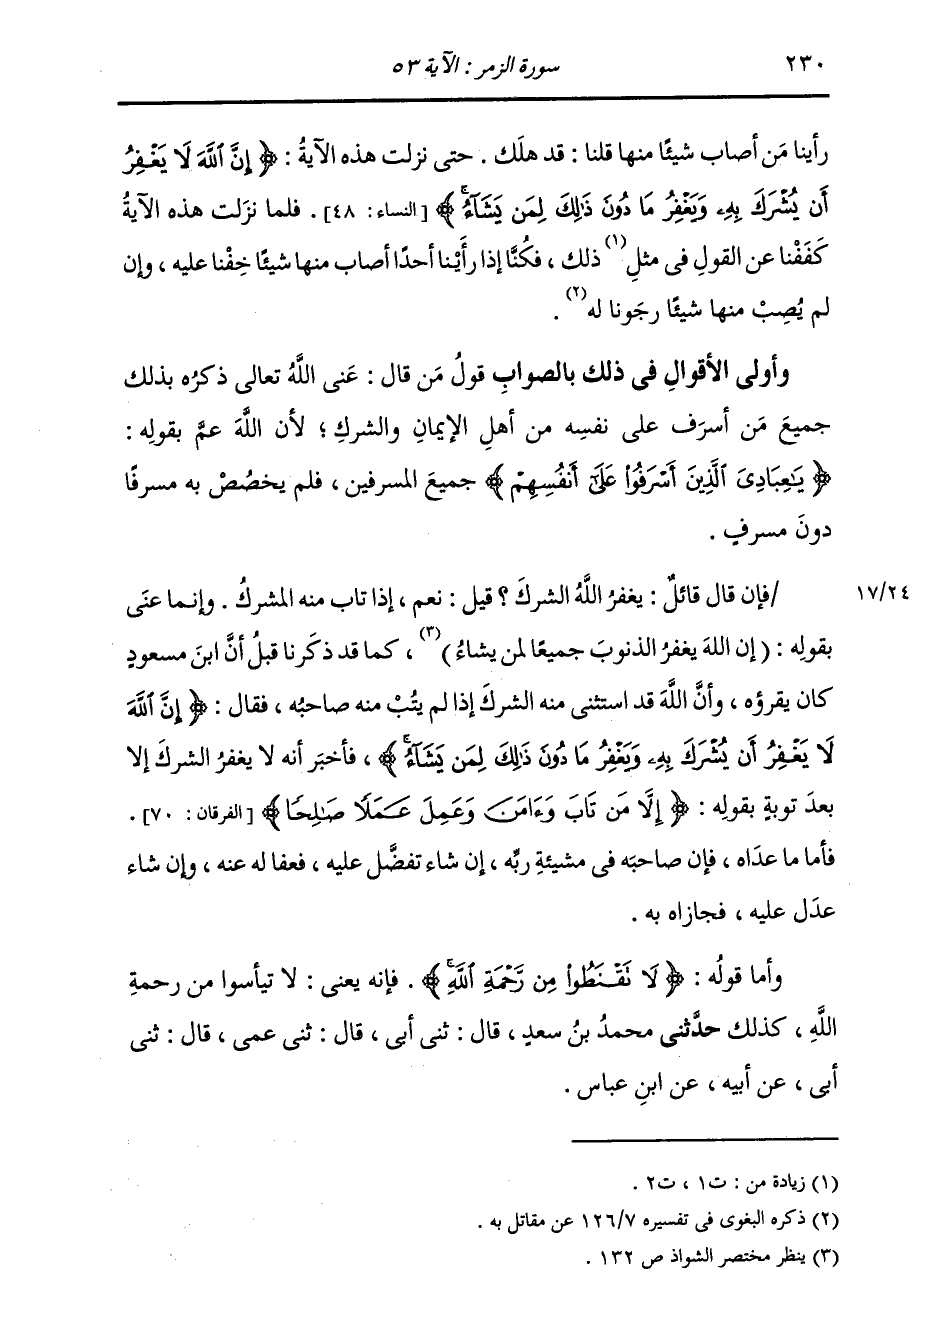 ٢٣٠ سورة الزمر : الآية ٥٣
رأينا مَن أصاب شيئًا منها قلنا : قد هلَك . حتى نزلت هذه الآيةُ : ﴿ إِنَّ ٱللَّهَ لَا يَغْفِرُ
أَن يُشْرَكَ بِهِۦ وَيَغْفِرُ مَا دُونَ ذَٰلِكَ لِمَن يَشَآءُۚ ﴾ [النساء: ٤٨] . فلما نزَلت هذه الآيةُ
كَفَفْنا عن القولِ فى مثلِ(١) ذلك ، فكُنَّا إذا رأَيْنا أحدًا أصاب منها شيئًا خِفْنا عليه ، وإن
لم يُصِبْ منها شيئًا رجَونا له(٢) .
وأولى الأقوالِ فى ذلك بالصوابِ قولُ مَن قال : عَنى اللَّهُ تعالى ذكرُه بذلك
جميعَ مَن أسرَف على نفسِه من أهلِ الإيمانِ والشركِ ؛ لأن اللَّهَ عمَّ بقولِه :
﴿ يَٰعِبَادِىَ ٱلَّذِينَ أَسْرَفُوا۟ عَلَىٰٓ أَنفُسِهِمْ ﴾ جميعَ المسرفين ، فلم يخصُصْ به مسرفًا
دونَ مسرفٍ .
١٧/٢٤ /فإن قال قائلٌ : يغفرُ اللَّهُ الشركَ ؟ قيل : نعم ، إذا تاب منه المشركُ . وإنما عنَى
بقولِه : ( إن اللهَ يغفرُ الذنوبَ جميعًا لمن يشاءُ )(٣) ، كما قد ذكَرنا قبلُ أنَّ ابنَ مسعودٍ
كان يقرؤه ، وأنَّ اللَّهَ قد استثنى منه الشركَ إذا لم يتُبْ منه صاحبُه ، فقال : ﴿ إِنَّ ٱللَّهَ
لَا يَغْفِرُ أَن يُشْرَكَ بِهِۦ وَيَغْفِرُ مَا دُونَ ذَٰلِكَ لِمَن يَشَآءُۚ ﴾ ، فأخبَر أنه لا يغفرُ الشركَ إلا
بعدَ توبةٍ بقولِه : ﴿ إِلَّا مَن تَابَ وَءَامَنَ وَعَمِلَ عَمَلًا صَٰلِحًا ﴾ [الفرقان : ٧٠] .
فأما ما عدَاه ، فإن صاحبَه فى مشيئةِ ربِّه ، إن شاء تفضَّل عليه ، فعفا له عنه ، وإن شاء
عدَل عليه ، فجازاه به .
وأما قولُه : ﴿ لَا تَقْنَطُوا۟ مِن رَّحْمَةِ ٱللَّهِۚ ﴾ . فإنه يعنى : لا تيأسوا من رحمةِ
اللَّهِ ، كذلك حدَّثنى محمدُ بنُ سعدٍ ، قال : ثنى أبى ، قال : ثنى عمى ، قال : ثنى
أبى ، عن أبيه ، عن ابنِ عباس .
(١) زيادة من : ت١ ، ت٢ .
(٢) ذكره البغوى فى تفسيره ١٢٦/٧ عن مقاتل به .
(٣) ينظر مختصر الشواذ ص ١٣٢ .